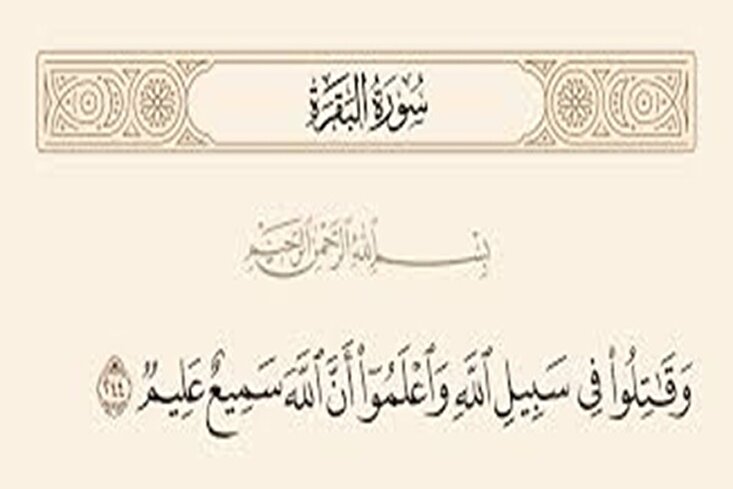 سُورَةُ البَقَرَةِ
بِسْمِ اللَّهِ الرَّحْمَٰنِ الرَّحِيمِ
وَقَٰتِلُوا۟ فِى سَبِيلِ ٱللَّهِ وَٱعْلَمُوٓا۟ أَنَّ ٱللَّهَ سَمِيعٌ عَلِيمٌ ٢٤٤